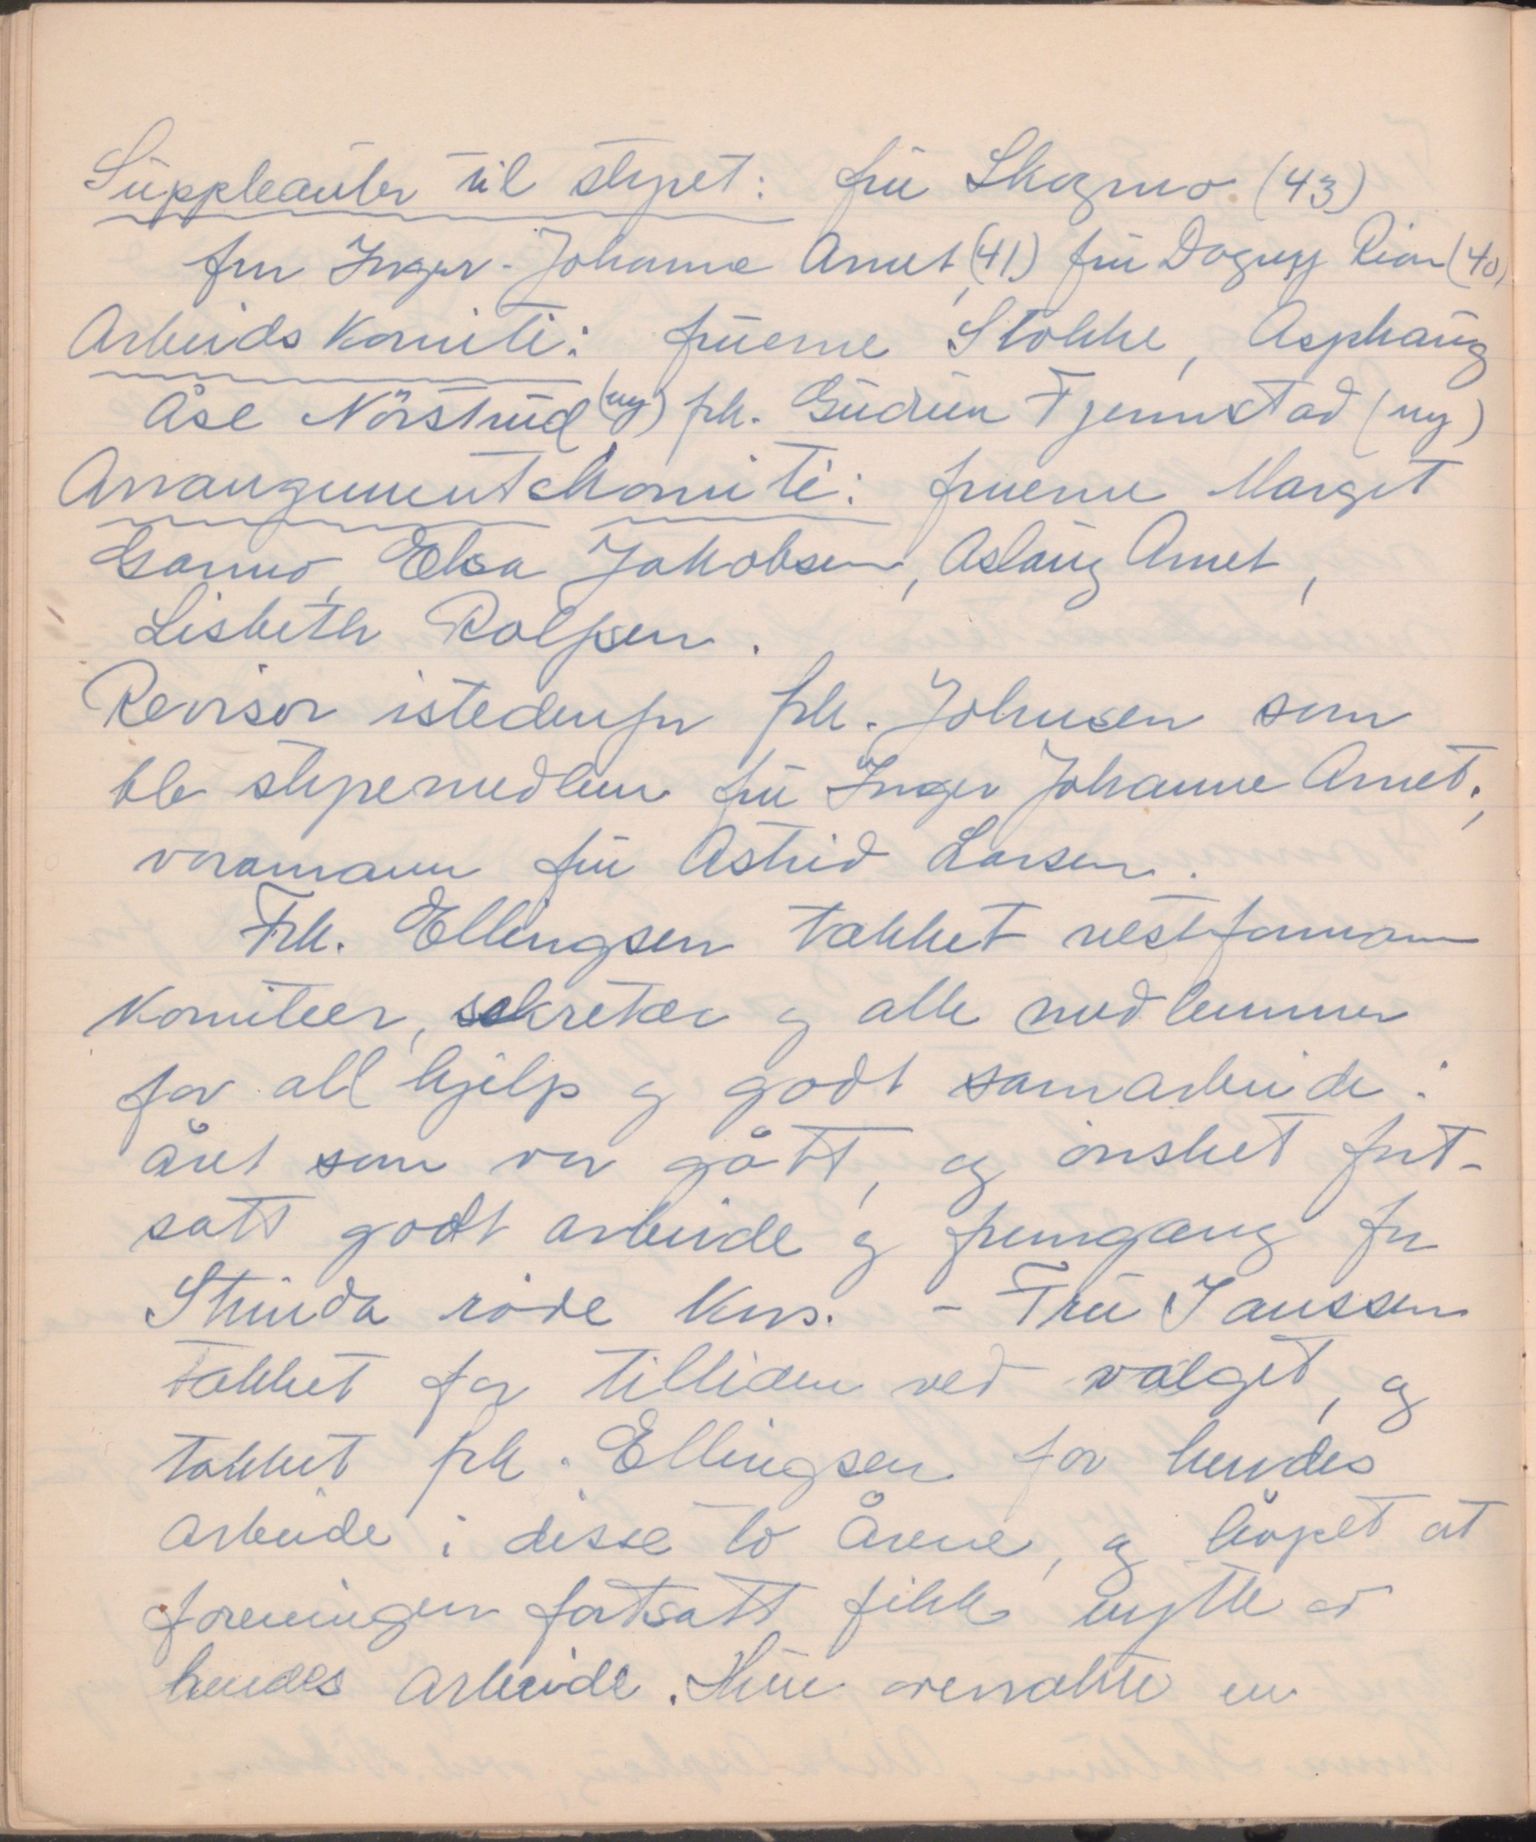 Suppleanter til styret: fru Skogmo (43)
fru Inger-Johanne Arnet, (41) fru Dagny Rian (40)
Arbeidskomite: fruerne Stokke, Asphaug
Åse Nörstrud (ny) frk. Gudrun Tjernstad (ny)
Arrangementskomite: fruerne Marget
Garmo, Elsa Jakobsen, Aslaug Arnet,
Lisbeth Rolfsen.
Revisor istedenfor frk. Johnsen som
ble styremedlem fru Inger Johanne Arnet,
varamann fru Astrid Larsen.
Frk. Ellingsen takket vestformann
komiteer, sekretær og alle medlemmer
for all hjelp og godt samarbeide i
året som var gått, og ønsket fort-
satt godt arbeide og fremgang for
Strinda røde kors. - Fru Janssen
takket for tilliden ved valget, og
takket frk. Ellingsen for hendes
arbeide i disse to årene, og håpet at
foreningen fortsatt fikk nytte av
hendes arbeide. Hun overrakte en